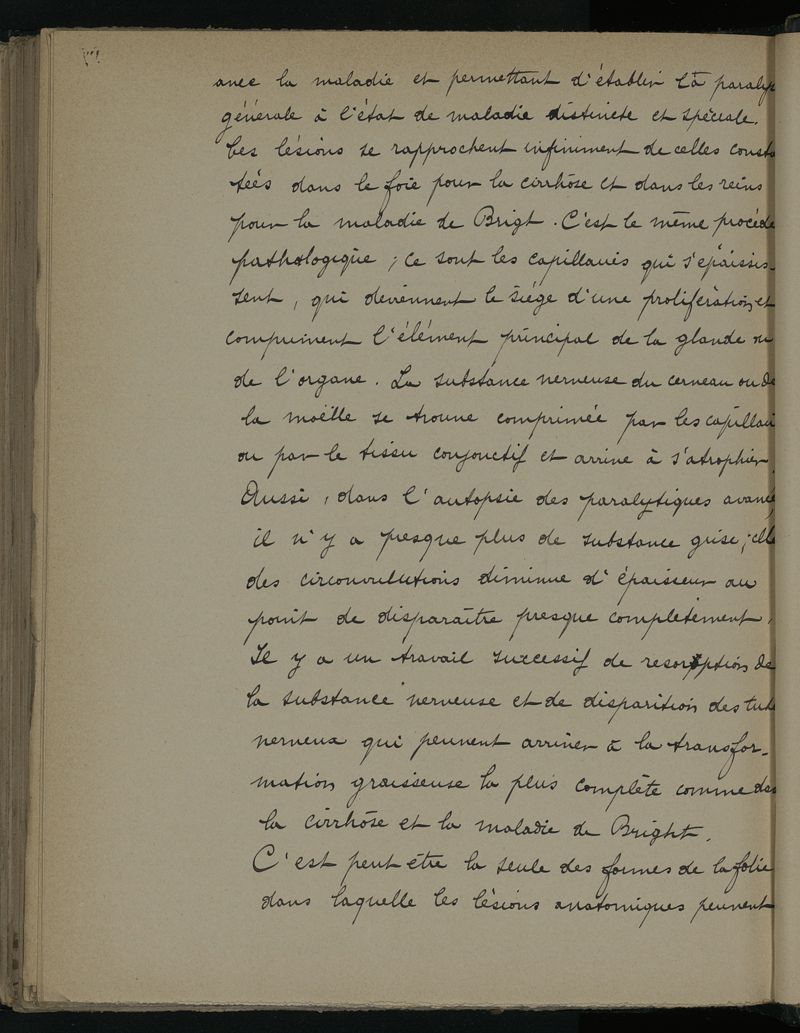 avec la maladie et permettant d'établir la paraly
générale à l'état de maladie distincte et spéciale.
Ces lésions se rapprochent infiniment de celles consta
tées dans le foie pour la cirrhose et dans les reins
pour la maladie de Brigt. C'est le même procédé
pathologique ; ce sont les capillaires qui s'épaissis-
sent, qui deviennent le siége d'une prolifération et
compriment l'élément principal de la glande ou
de l'organe. La substance nerveuse du cerveau ou de
la moëlle se trouve comprimée par les capillai
ou par le tissu conjonctif et arrive à s'atrophier.
Aussi, dans l'autopsie des paralytiques avancé
il n'y a presque plus de substance grise ; elle
des circonvolutions diminue d'épaisseur au
point de disparaître presque complètement.
Il y a un travail successif de resorption de
la substance nerveuse et de disparition des tub
nerveux qui peuvent arriver à la transfor-
mation graisseuse la plus complète comme da
la cirrhose et la maladie de Bright.
C'est peut être la seule des formes de la folie
dans laquelle les lésions anatomiques peuvent